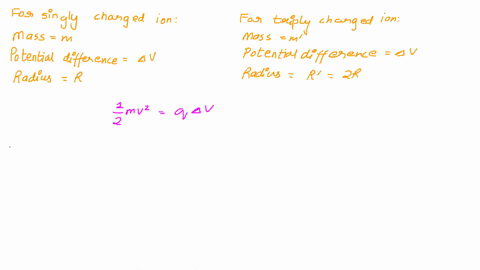 For singly changed ion:
Mass = m
Potential difference = ΔV
Radius = R
For triply changed ion:
Mass = m'
Potential difference = ΔV
Radius = R' = 2R
1/2 mv² = q ΔV